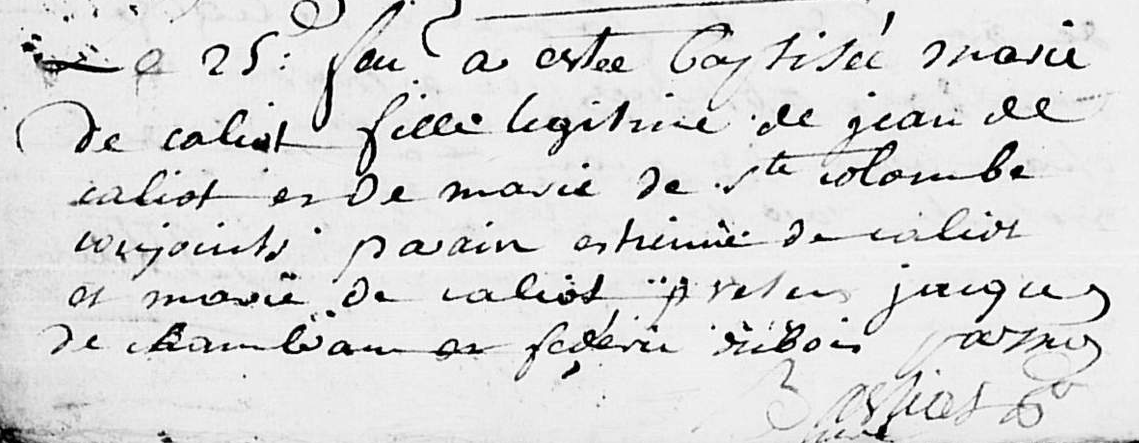 Le 25: a estee Baptisée marie
de caliot fille legitime de jean de
caliot et de marie de Ste colombe
conjoints parain estienne de caliot
et marie de caliot presens jacques
de et dubois par moy